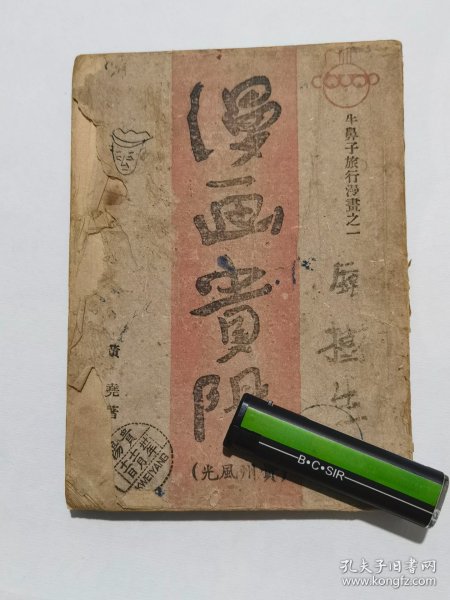 牛鼻子旅行漫畫之一
漫画貴阳
(貴州風光)
黃堯著
貴陽
KWEIYANG
B•C•SIR
孔夫子旧书网
www.kongfz.com